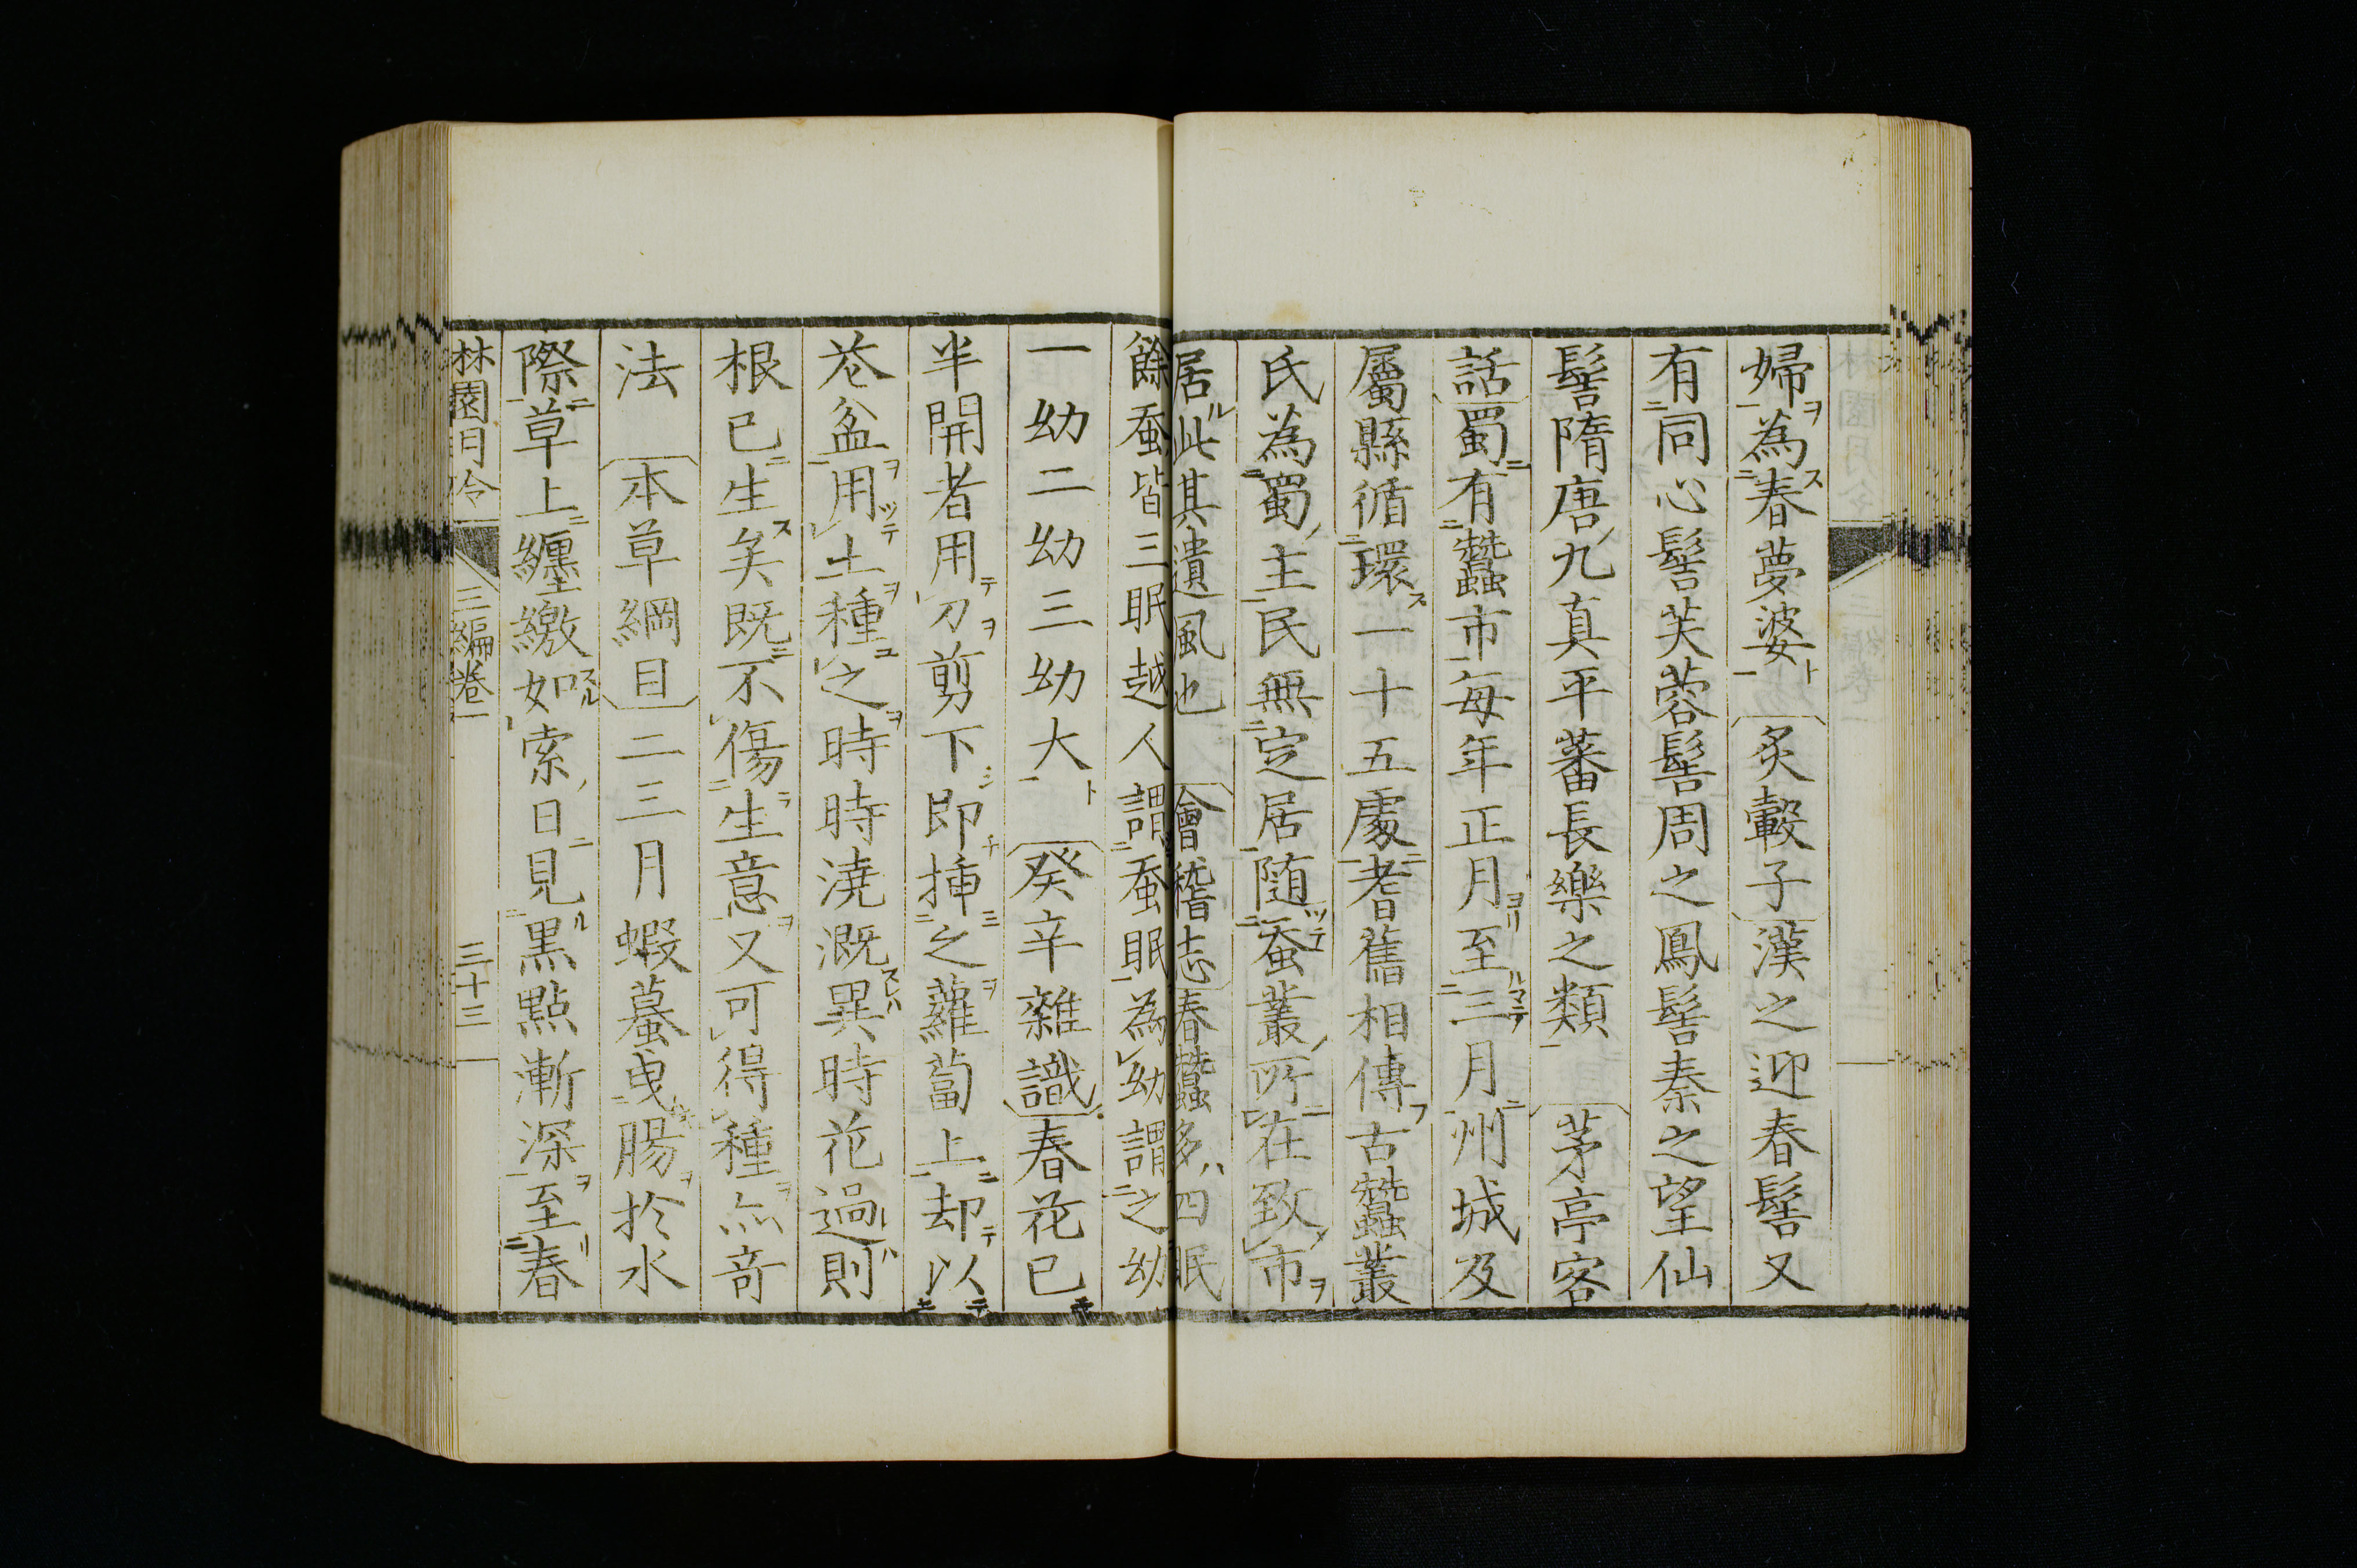 婦為春夢婆 炙轂子漢之迎春髻又
有同心髻芙蓉髻周之鳳髻秦之望仙
髻隋唐九真平蕃長樂之類 茅亭客
話蜀有蠶市每年正月至三月州城及
屬縣循環一十五處耆舊相傳古蠶叢
氏為蜀主民無定居隨蚕叢所在致市
居此其遺風也 會稽志春蠶多四眠
餘蚕皆三眠越人謂蚕眠為幼謂之幼
一幼二幼三幼大 癸辛雜識春花已
半開者用刀剪下即揷之蘿蔔上却以
花盆用土種之時時澆溉異時花過則
根已生矣既不傷生意又可得種亦竒
法 本草綱目二三月蝦蟇曳腸於水
際草上纏繳如索日見黒點漸深至春
林園月令 三編卷一 三十三